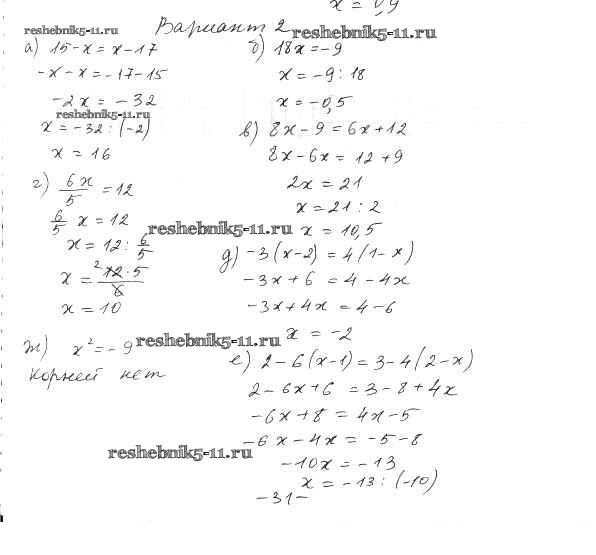 x = 0,9
Вариант 2
reshebnik5-11.ru
reshebnik5-11.ru
а) 15-x = x-17
-x-x = -17-15
-2x = -32
reshebnik5-11.ru
x = -32 : (-2)
x = 16
б) 18x = -9
x = -9 : 18
x = -0,5
в) 8x - 9 = 6x + 12
8x - 6x = 12 + 9
2x = 21
x = 21 : 2
x = 10,5
г) 6x/5 = 12
6/5 x = 12
reshebnik5-11.ru
x = 12 : 6/5
x = 12·5/6
2
x = 10
д) -3(x-2) = 4(1-x)
-3x + 6 = 4 - 4x
-3x + 4x = 4 - 6
x = -2
ж) x² = -9
reshebnik5-11.ru
корней нет
е) 2 - 6(x-1) = 3 - 4(2-x)
2 - 6x + 6 = 3 - 8 + 4x
-6x + 8 = 4x - 5
-6x - 4x = -5 - 8
reshebnik5-11.ru
-10x = -13
x = -13 : (-10)
-31-